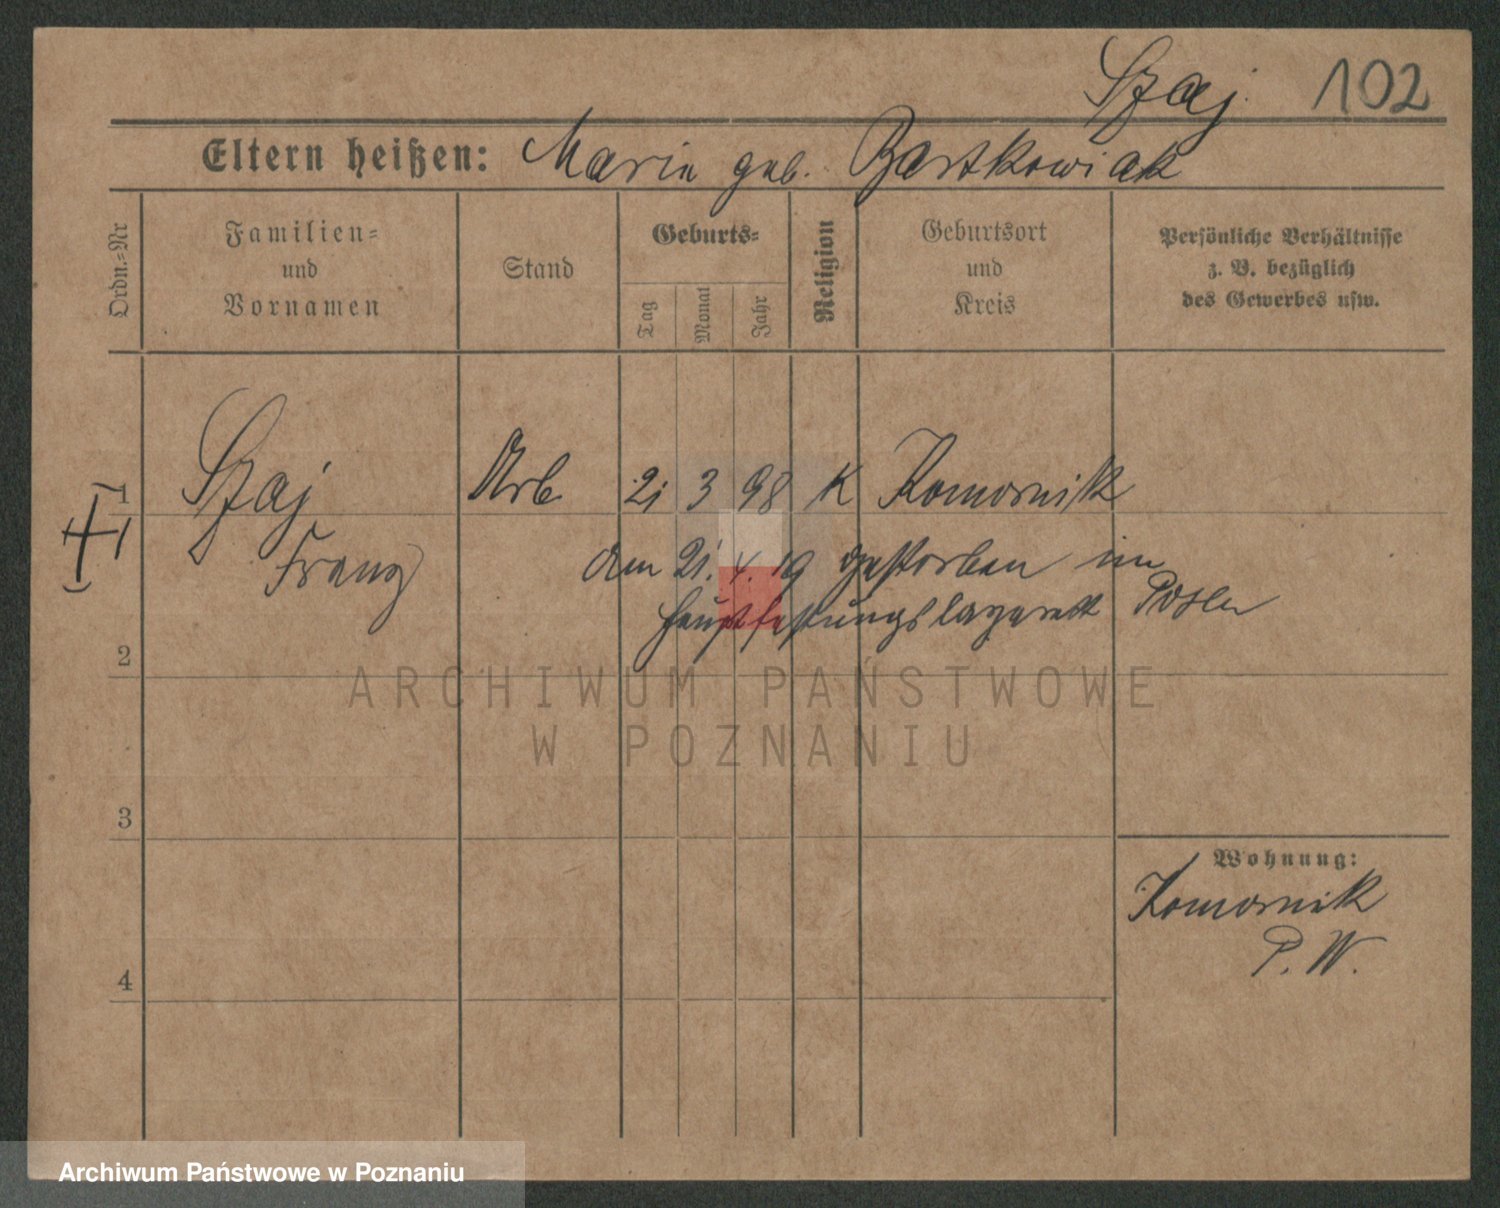 Szaj 102
Eltern heißen: Marie geb. Bartkowiak
Ordn.=Nr
Familien=
und
Vornamen
Stand
Geburts=
Tag
Monat
Jahr
Religion
Geburtsort
und
Kreis
Persönliche Verhältnisse
z. B. bezüglich
des Gewerbes usw.
1 Szaj Arb 21 3 98 K Komornik
Franz den 21. 4. 19 gestorben im
Hauptfestungslazarett Posen
2
ARCHIWUM PAŃSTWOWE
W POZNANIU
3
Wohnung:
Komornik
P. W.
4
Archiwum Państwowe w Poznaniu